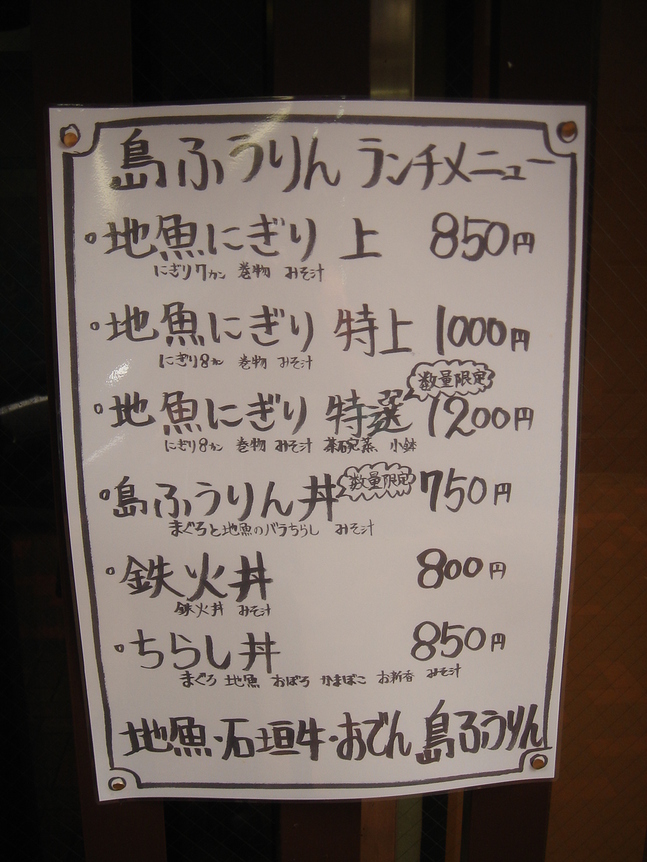 島ふうりん ランチメニュー
・地魚にぎり 上 850円
にぎり7カン 巻物 みそ汁
・地魚にぎり 特上 1000円
にぎり8カン 巻物 みそ汁
数量限定
・地魚にぎり 特選 1200円
にぎり8カン 巻物 みそ汁 茶碗蒸 小鉢
・島ふうりん丼 数量限定 750円
まぐろと地魚のバラちらし みそ汁
・鉄火丼 800円
鉄火丼 みそ汁
・ちらし丼 850円
まぐろ 地魚 おぼろ かまぼこ お新香 みそ汁
地魚・石垣牛・おでん 島ふうりん